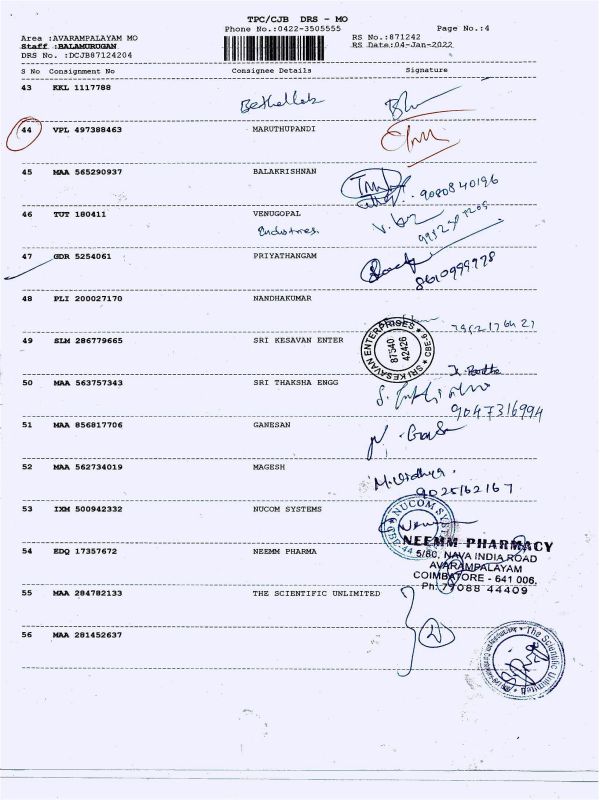 TPC/CJB DRS - MO
Phone No.:0422-3505555 Page No.:4
Area :AVARAMPALAYAM MO RS No.:871242
Staff :BALAMURUGAN RS Date:04-Jan-2022
DRS No. :DCJB87124204
S No Consignment No Consignee Details Signature
43 KKL 1117788
44 VPL 497388463 MARUTHUPANDI
45 MAA 565290937 BALAKRISHNAN
9080840196
46 TUT 180411 VENUGOPAL
Industries.
47 GDR 5254061 PRIYATHANGAM
8610999778
48 PLI 200027170 NANDHAKUMAR
49 SLM 286779665 SRI KESAVAN ENTER
SRI KESAVAN ENTERPRISES * CBE-6 *
87540
42426
50 MAA 563757343 SRI THAKSHA ENGG
9047316994
51 MAA 856817706 GANESAN
52 MAA 562734019 MAGESH
M. Vidhya.
9025162167
53 IXM 500942332 NUCOM SYSTEMS
NUCOM SYST
54 EDQ 17357672 NEEMM PHARMA
NEEMM PHARMACY
5/80, NAVA INDIA ROAD
AVARAMPALAYAM
COIMBATORE - 641 006.
Ph: 77088 44409
55 MAA 284782133 THE SCIENTIFIC UNLIMITED
56 MAA 281452637
The Scientific Unlimited